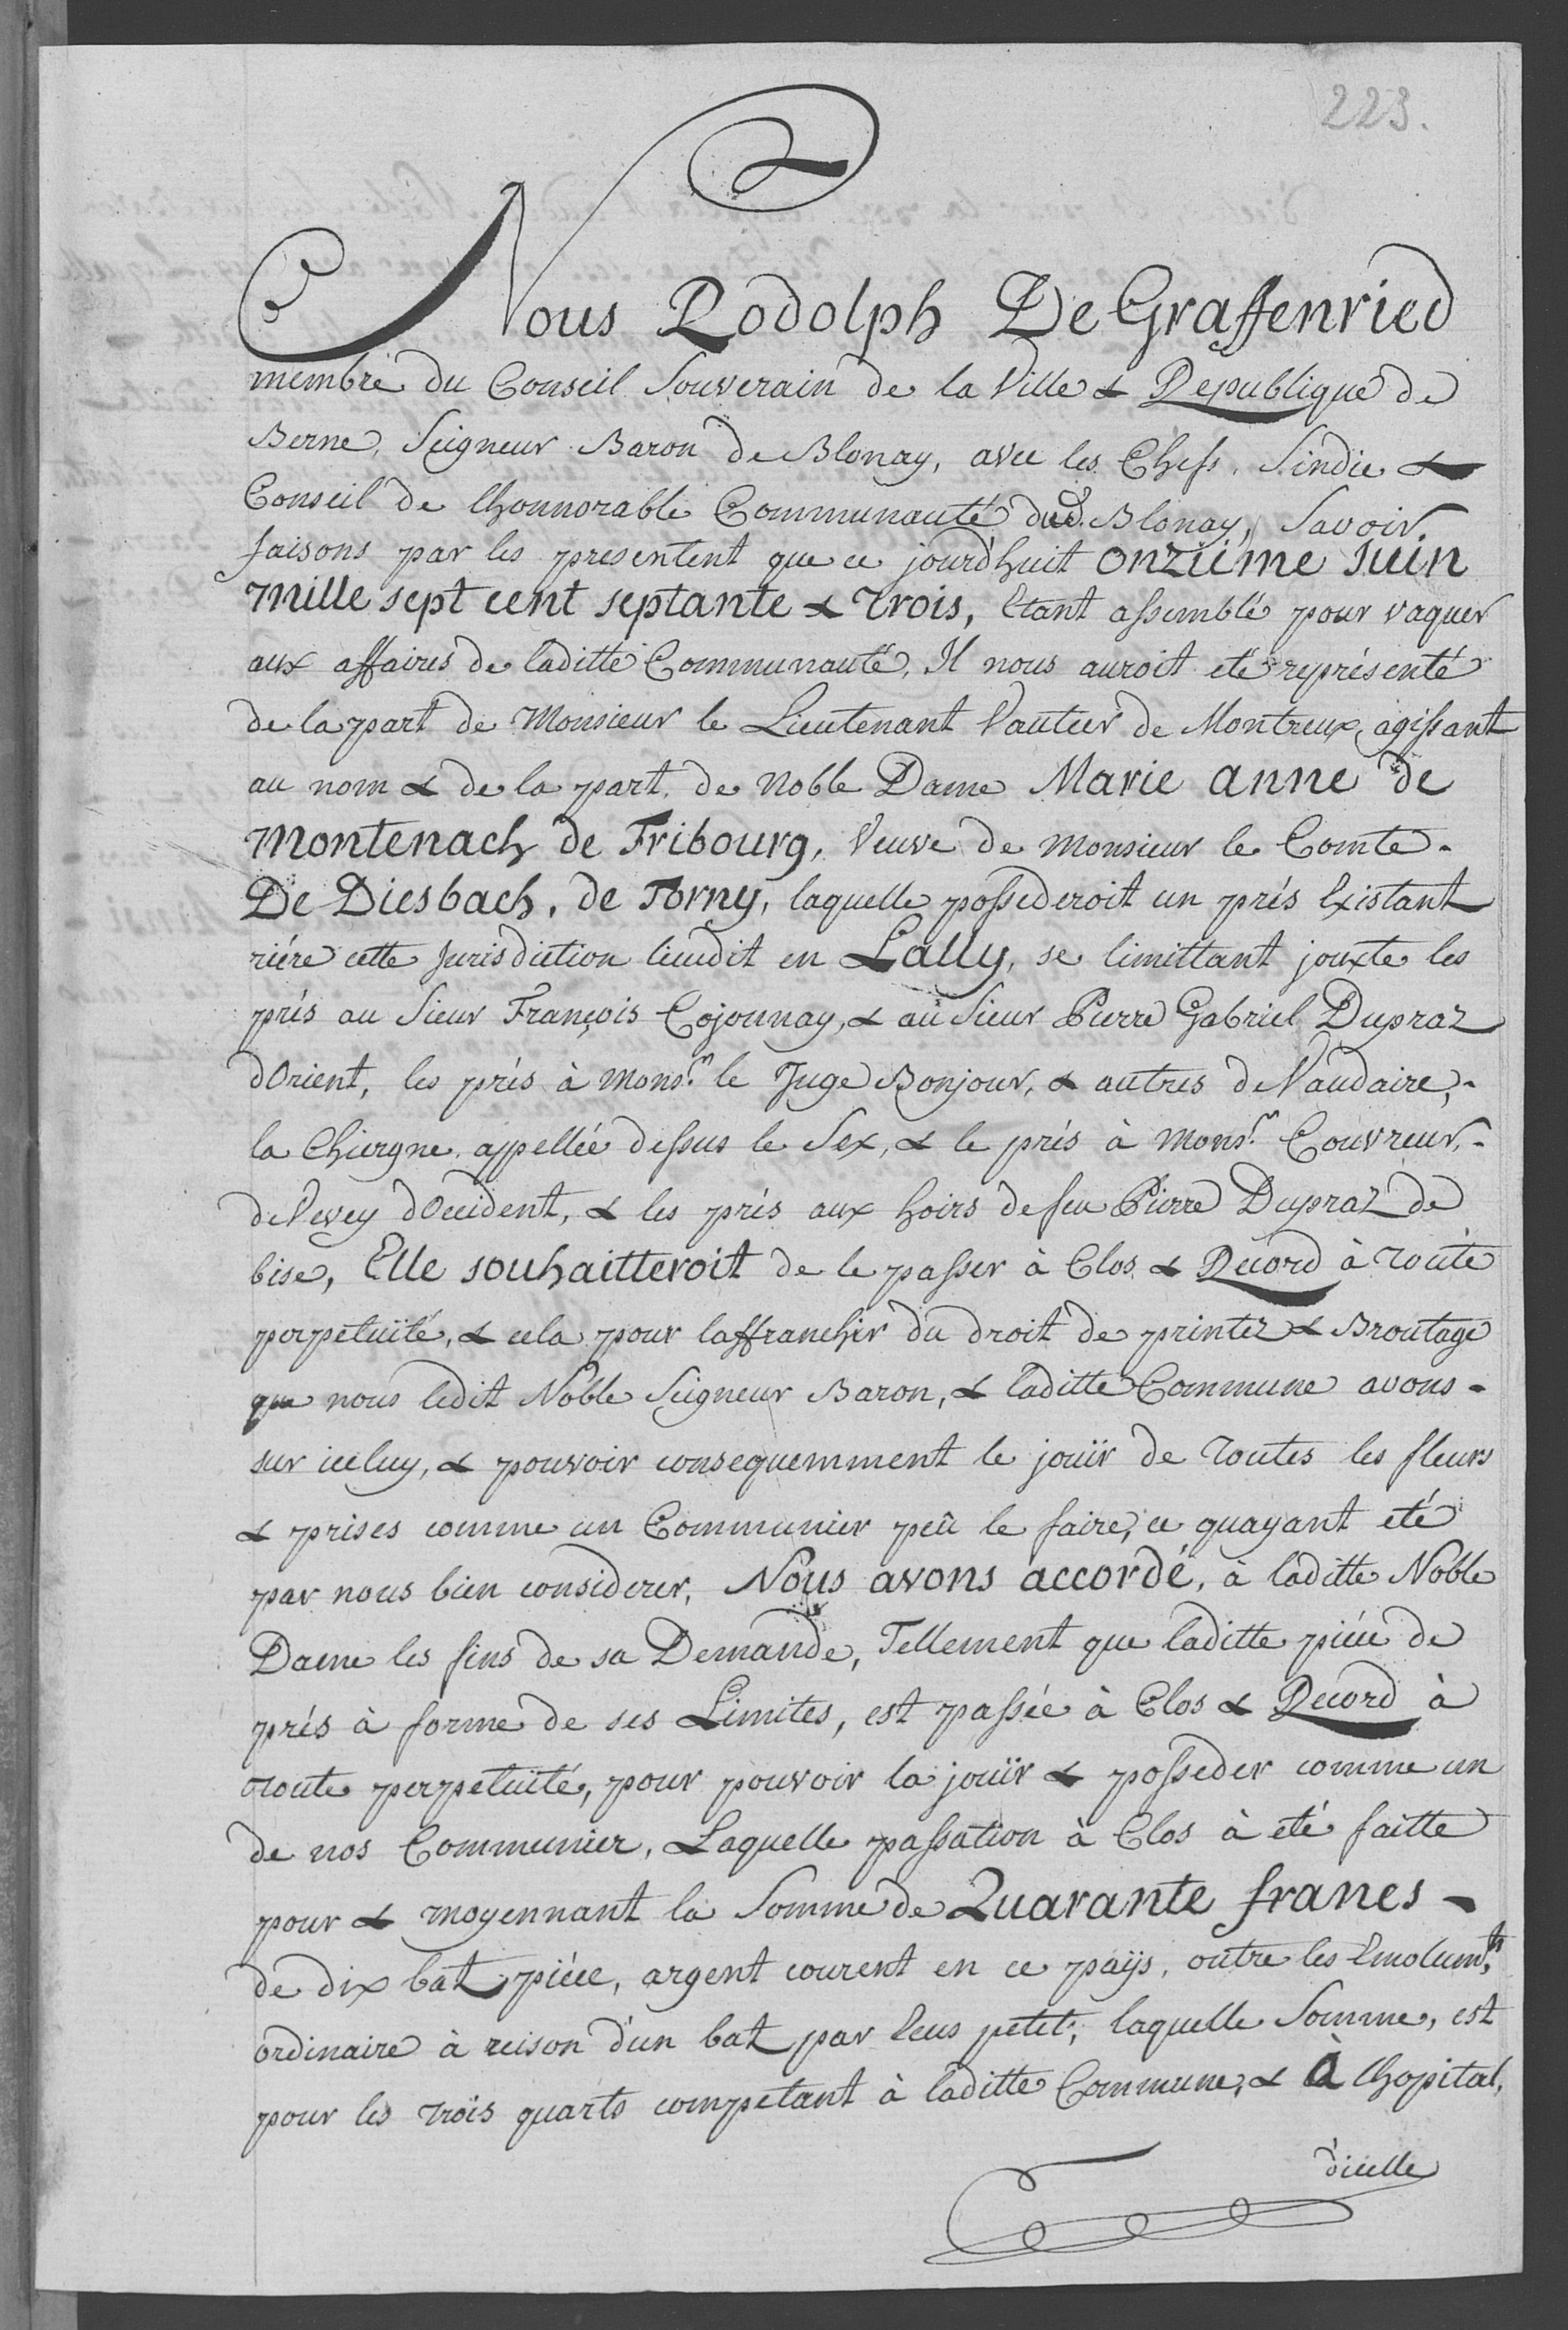 223.
Nous Rodolph De Graffenried
membre du Conseil Souverain de la Ville & Republique de
Berne, Seigneur Baron de Blonay, avec les Chefs, Sindic &
Conseil de lhonnorable Communauté dud. Blonay, Savoir
faisons par les presentent que ce jourd'huit onziéme Juin
mille sept cent septante & Trois, Etant assemblé pour vaquer
aux affaires de laditte Communauté, Il nous auroit eté représenté
de la part de Monsieur le Lieutenant Vautier de Montreux, agissant
au nom & de la part, de Noble Dame Marie Anne de
Montenach de Fribourg, Veuve de Monsieur le Comte -
De Diesbach, de Torny, laquelle possederoit un prés Existant
riére cette Jurisdiction lieudit en Lally, se limittant jouxte les
prés au Sieur François Cojonnay, & au Sieur Pierre Gabriel Dupraz
dOrient, les prés à Mons.r le Juge Bonjour, & autres de Vaudaire, -
la Chiergne appellée dessus le Sex, & le prés à Mons.r Couvreur, -
de Vevey dOccident, & les prés aux hoirs de feu Pierre Dupraz de
bise, Elle souhaitteroit de le passer à Clos & Record à Toute
perpetuité, & cela pour laffranchir du droit de printez & Broutage
que nous ledit Noble Seigneur Baron, & laditte Commune avons -
sur iceluy, & pouvoir consequemment le jouïr de Toutes les fleurs
& prises comme un Communier peû le faire, ce quayant eté
par nous bien considerer, Nous avons accordé, à laditte Noble
Dame les fins de sa Demande, Tellement que laditte piéce de
prés à forme de ses Limites, est passée à Clos & Record à
Toute perpetuïté, pour pouvoir la jouïr & posseder comme un
de nos Communier, Laquelle passation à Clos à eté faitte
pour & moyennant la Somme de Quarante francs -
de dix batz piéce, argent courent en ce païs, outre les Emolum.ts
ordinaire à reison d'un batz par Ecus petit, laquelle Somme, est
pour les trois quarts competant à laditte Commune, & à lhopital,
dicelle